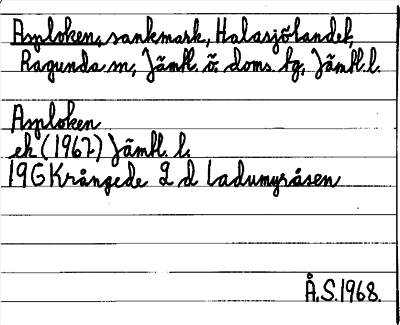 Asploken, sankmark, Halasjölandet,
Ragunda sn, Jämtl. ö. doms. tg, Jämtl. l.
Asploken
ek (1967) Jämtl. l.
19G Krångede 2 d Ladumyråsen
Å.S. 1968.